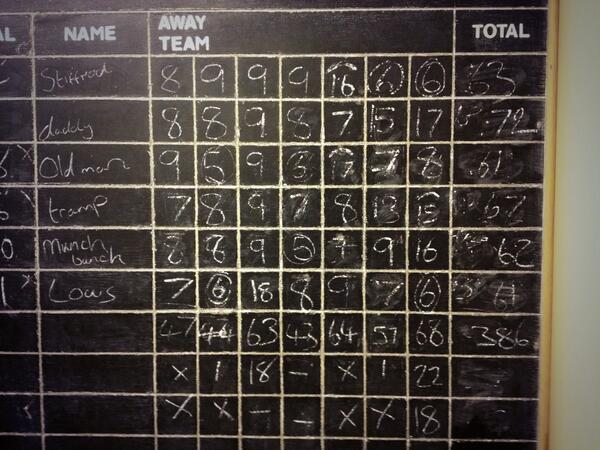 AL NAME AWAY TEAM TOTAL
8 9 9 9 16 6 6 63
daddy 8 8 9 8 7 15 17 72
Old man 9 5 9 6 17 7 8 61
tramp 7 8 9 7 8 13 15 67
0 Munch bunch 8 8 9 5 7 9 16 62
Louis 7 6 18 8 9 7 6 61
47 44 63 43 64 57 68 386
x 1 18 - x 1 22
x x - - x x 18 -